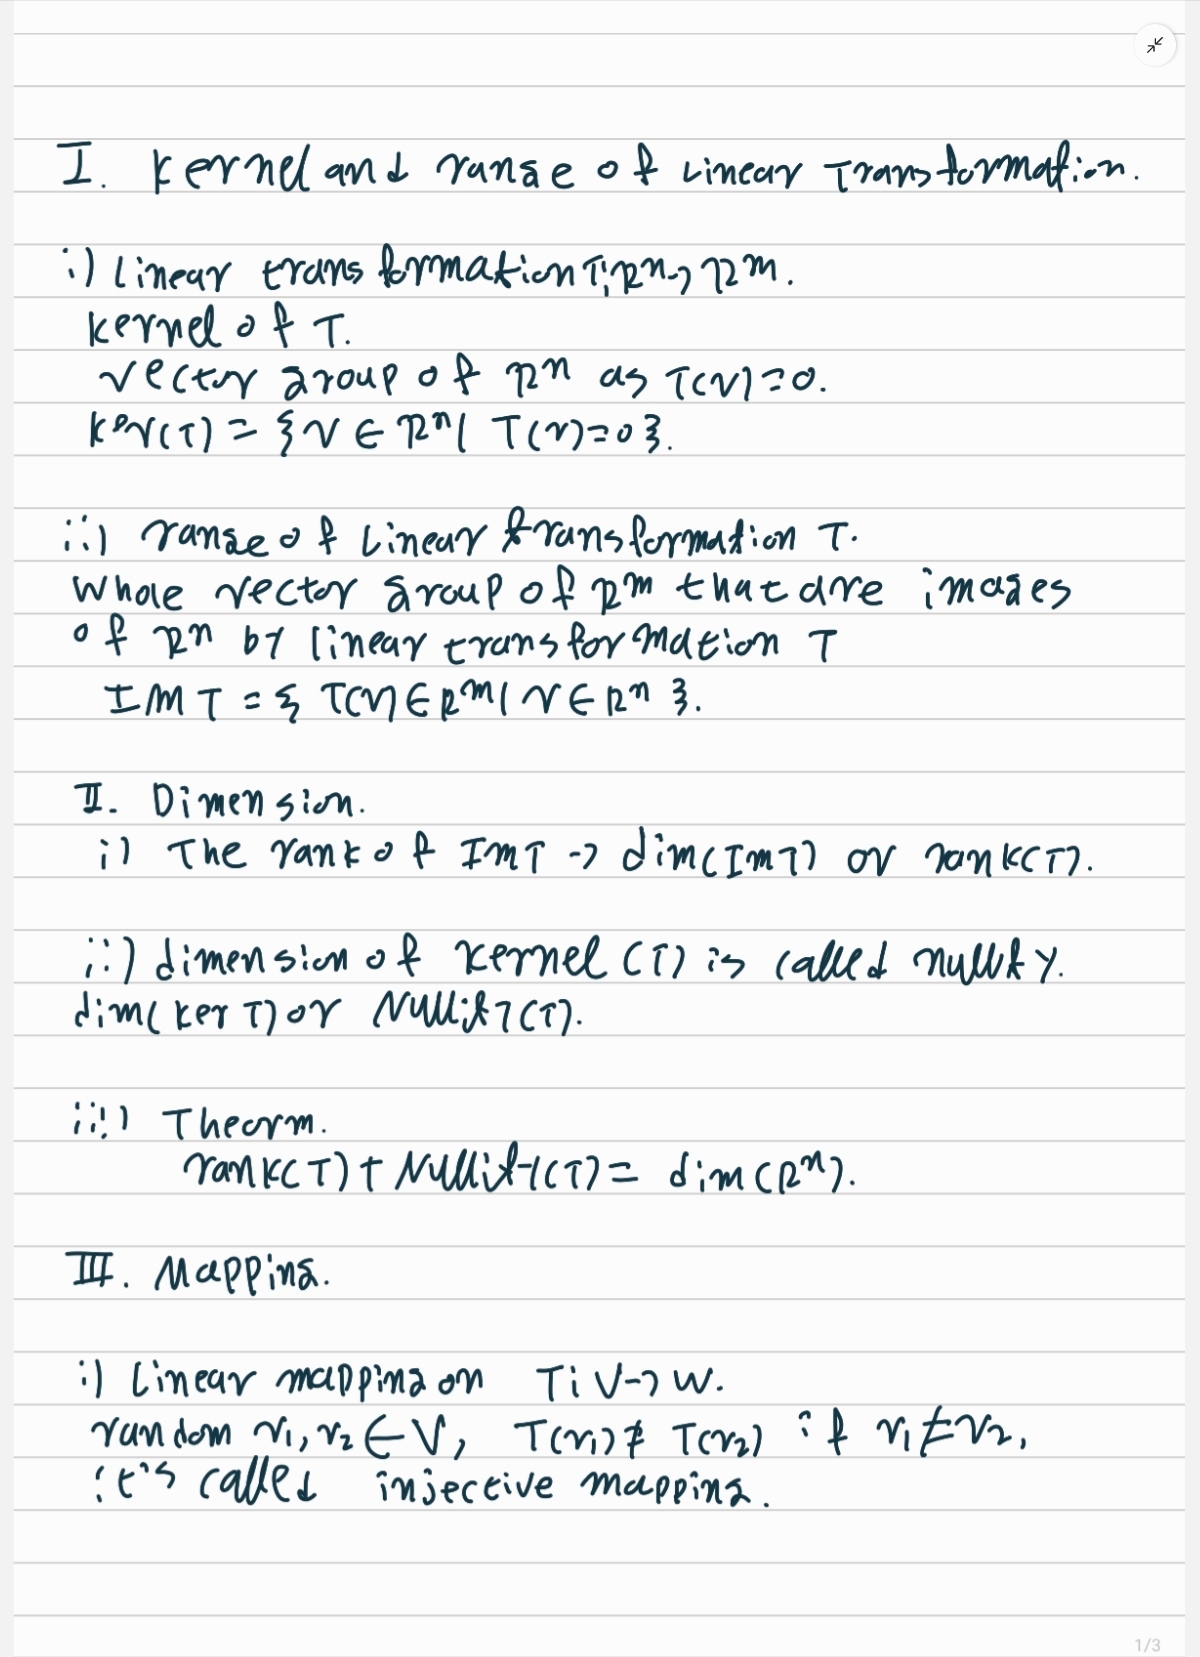 I. Kernel and range of Linear Transformation.
i) Linear transformation T: Rⁿ→Rᵐ.
Kernel of T.
vector group of Rⁿ as T(v)=0.
Ker(T) = {v ∈ Rⁿ| T(v)=0}.
ii) range of Linear transformation T.
Whole vector group of Rᵐ that are images
of Rⁿ by linear transformation T
IM T = { T(v) ∈ Rᵐ| v ∈ Rⁿ }.
II. Dimension.
i) The rank of ImT -> dim(ImT) or rank(T).
ii) dimension of kernel (T) is called nullity.
dim(ker T) or Nullity(T).
iii) Theorm.
rank(T) + Nullity(T) = dim(Rⁿ).
III. Mapping.
i) Linear mapping on T: V→W.
random v₁, v₂ ∈ V, T(v₁) ≠ T(v₂) if v₁ ≠ v₂,
it's called injective mapping.
1/3